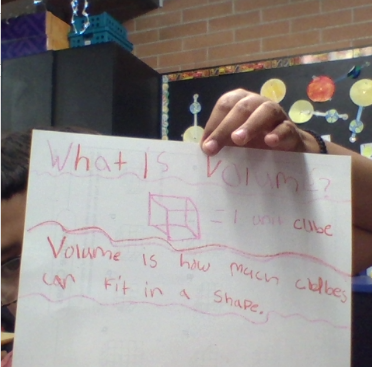 What Is Volume?
= 1 unit cube
Volume is how much cubes
can fit in a shape.